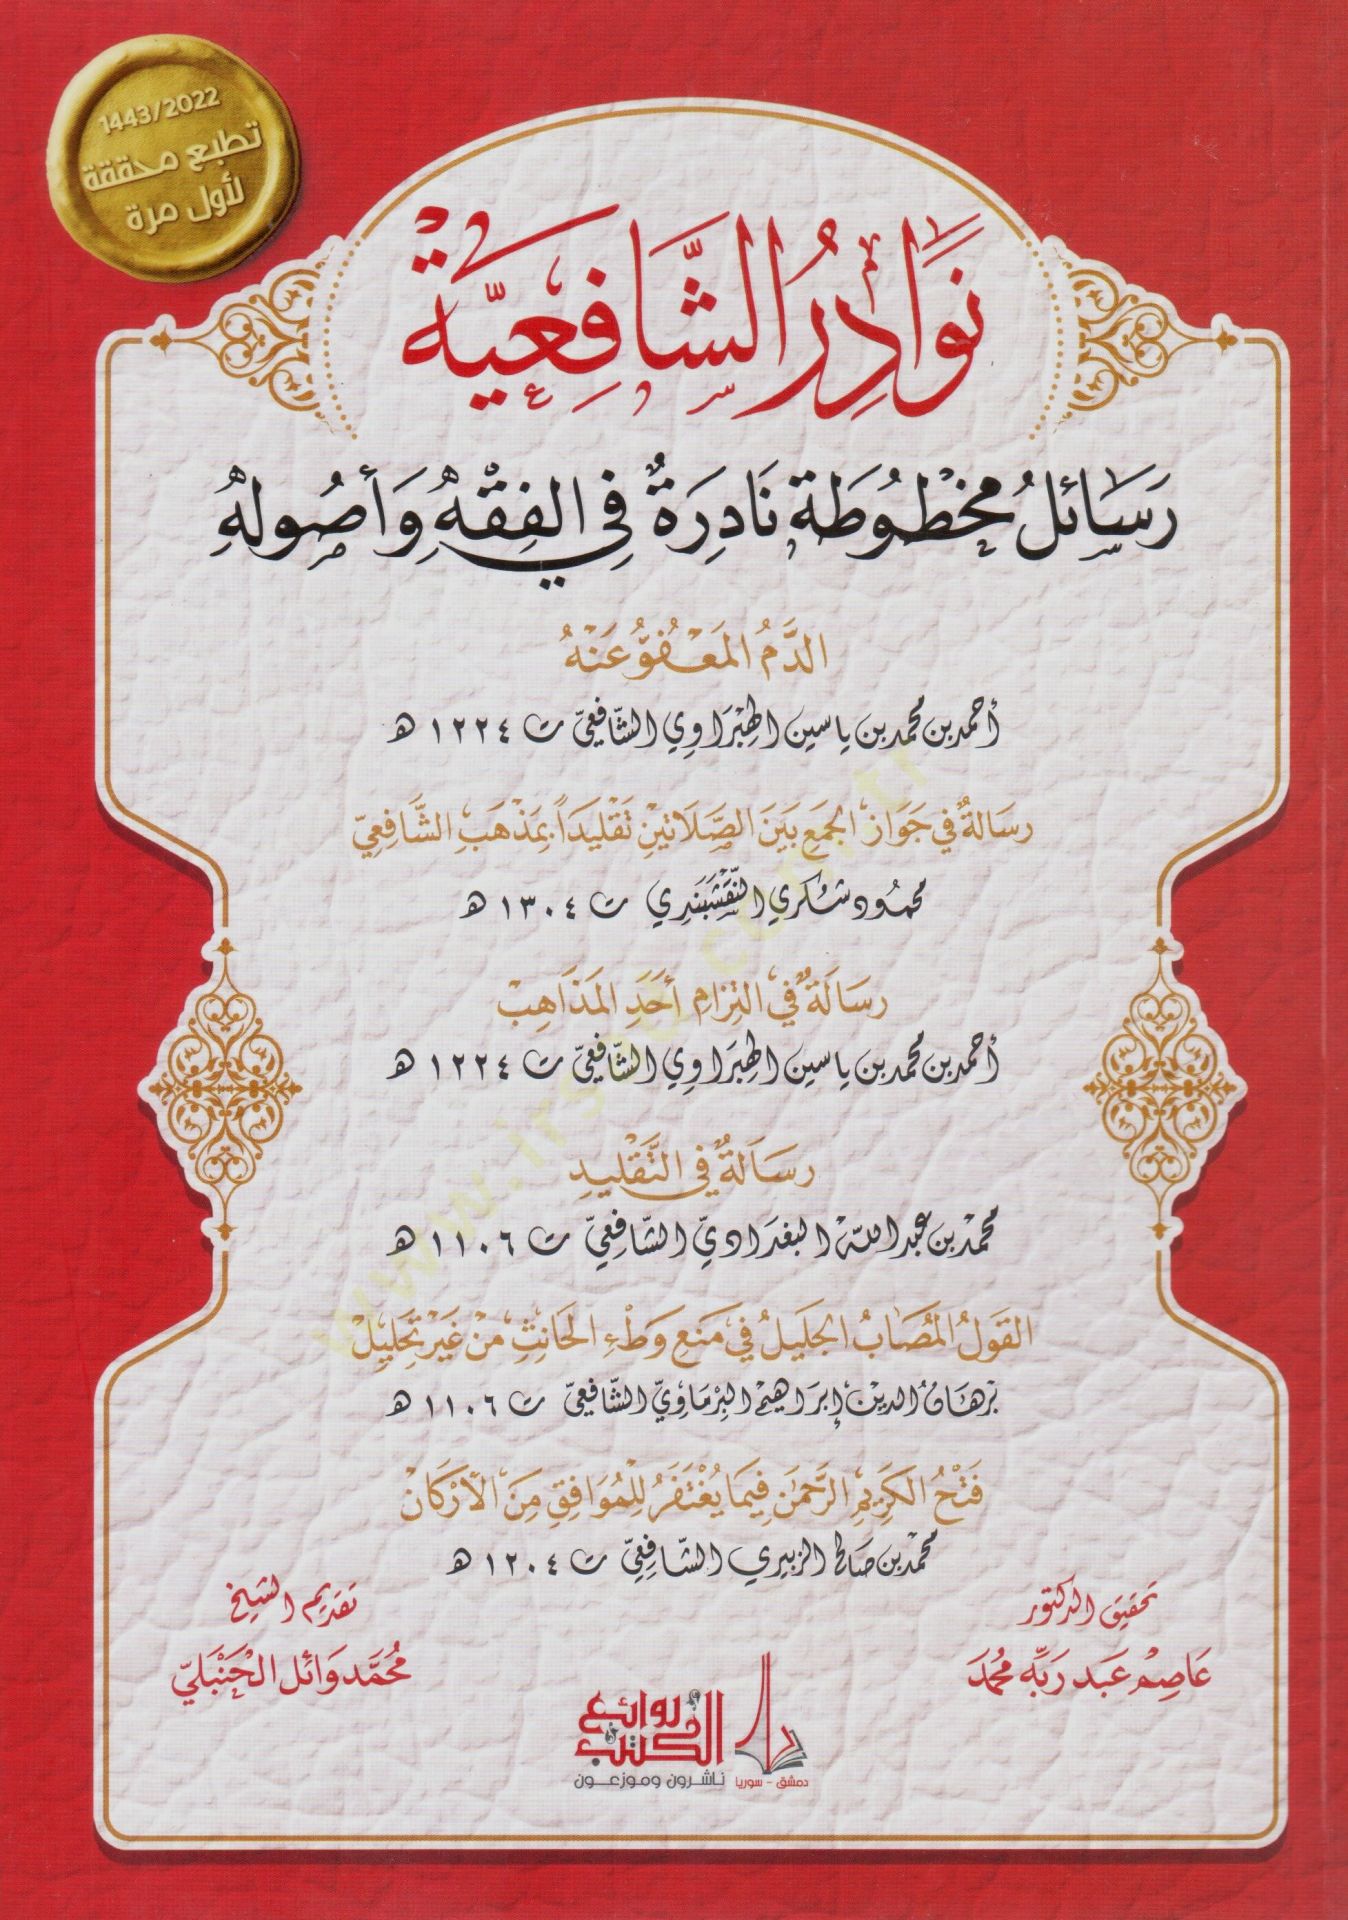 1443/2022
تطبع محققة
لأول مرة
نَوَادِرُ الشَّافِعِيَّة
رَسَائِلُ مَخْطُوطَة نَادِرَةٌ فِي الفِقْهِ وَأُصُولِهِ
الدَّمُ المَعْفُوُّ عَنْهُ
أحمد بن محمد بن ياسين الهِبْرَاوِي الشَّافِعيّ ت ١٢٢٤ هـ
رسَالَةٌ في جَوَازِ الجَمعِ بَينَ الصَّلَاتَينِ تَقْلِيدَاً بِمَذهَبِ الشَّافِعِيّ
محمُود شُكري النَّقْشَبَندِي ت ١٣٠٤ هـ
رسَالَةٌ في التِزَامِ أَحَدِ المَذَاهِبْ
أحمد بن محمد بن ياسين الهِبْرَاوِي الشَّافِعيّ ت ١٢٢٤ هـ
رسَالَةٌ في التَّقْلِيدِ
محمَّد بن عبد اللَّه البَغدَادِيّ الشَّافِعِيّ ت ١١٠٦ هـ
القَولُ المُصَابُ الجَلِيلُ في مَنعِ وَطْءِ الحَانِثِ مِنْ غَيْرِ تَحْلِيلْ
بُرهَانُ الدِين إبرَاهِيْم البِرْمَاوِيّ الشَّافِعيّ ت ١١٠٦ هـ
فَتْحُ الكَرِيمِ الرَّحمَنِ فِيمَا يُغْتَفَرُ لِلْمُوَافِقِ مِنَ الأَرْكَانْ
محمَّد بن صَالح الزبيري الشَّافِعِيّ ت ١٢٠٤ هـ
تحقيق الدكتور
عَاصِمْ عَبد رَبِّه مُحمَّد
تقديم الشيخ
مُحَمَّد وَائل الحَنْبَليّ
دار
روائع
الكتب
دمشق - سوريا ناشرون وموزعون